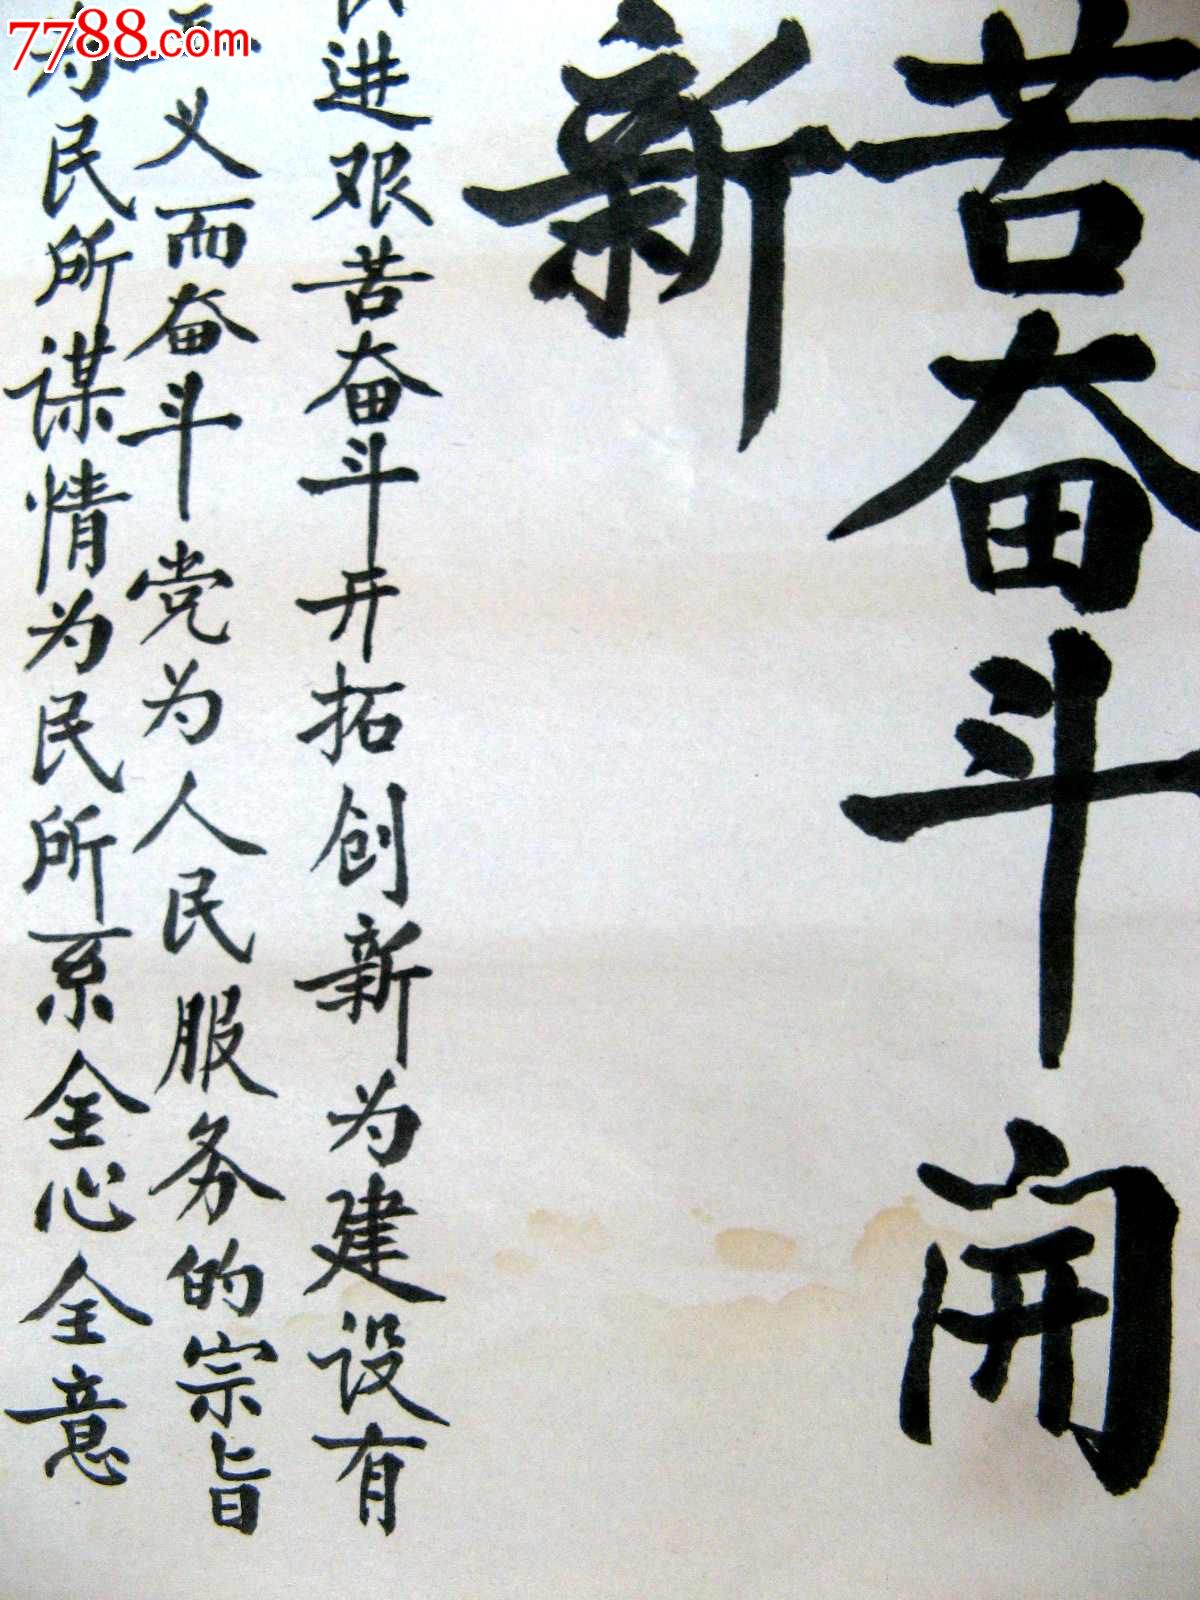 7788.com
苦奋斗開
新
进艰苦奋斗开拓创新为建设有
义而奋斗党为人民服务的宗旨
为民所谋情为民所系全心全意